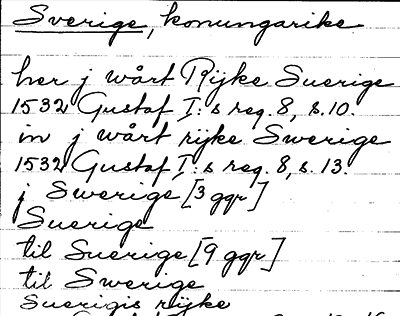 Sverige, konungarike
her j wårt Rijke Suerige
1532 Gustaf I:s reg. 8, s. 10.
in j wårt rijke Swerige
1532 Gustaf I:s reg. 8, s. 13.
j Swerige [3 ggr]
Suerige
til Suerige [9 ggr]
til Swerige
Suerigis rijke